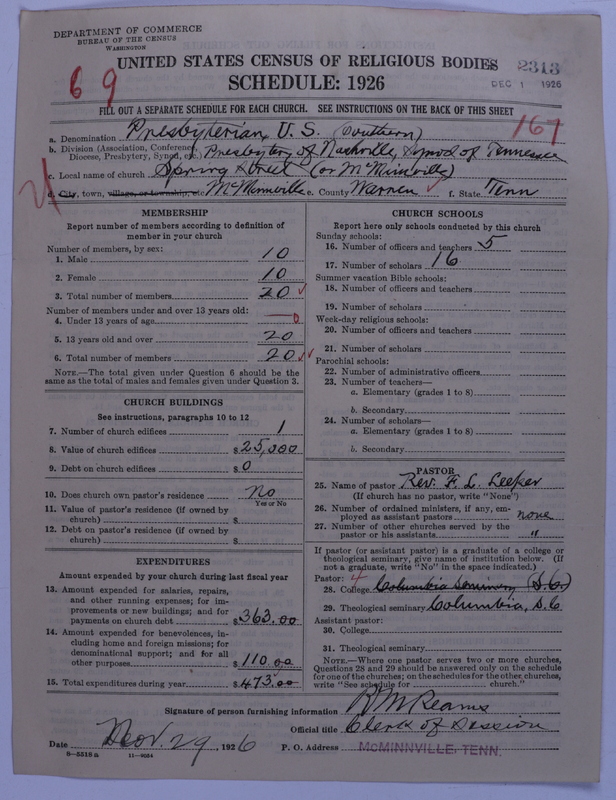 DEPARTMENT OF COMMERCE
BUREAU OF THE CENSUS
WASHINGTON
UNITED STATES CENSUS OF RELIGIOUS BODIES
2313
DEC 1 1926
69
SCHEDULE: 1926
FILL OUT A SEPARATE SCHEDULE FOR EACH CHURCH. SEE INSTRUCTIONS ON THE BACK OF THIS SHEET
167
a. Denomination Presbyterian, U. S. (Southern)
b. Division (Association, Conference, Diocese, Presbytery, Synod, etc.) Presbytery of Nashville, Synod of Tennessee
c. Local name of church Spring Street (or McMinnville)
d. City, town, village, or township, etc McMinnville e. County Warren f. State Tenn
MEMBERSHIP
Report number of members according to definition of
member in your church
Number of members, by sex:
1. Male 10
2. Female 10
3. Total number of members 20
Number of members under and over 13 years old:
4. Under 13 years of age 0
5. 13 years old and over 20
6. Total number of members 20
NOTE.—The total given under Question 6 should be
same as the total of males and females given under Question 3.
CHURCH BUILDINGS
See instructions, paragraphs 10 to 12
7. Number of church edifices 1
8. Value of church edifices $25,000
9. Debt on church edifices $0
10. Does church own pastor's residence No
Yes or No
11. Value of pastor's residence (if owned by
church) $
12. Debt on pastor's residence (if owned by
church) $
EXPENDITURES
Amount expended by your church during last fiscal year
13. Amount expended for salaries, repairs,
and other running expenses; for im-
provements or new buildings; and for
payments on church debt $363.00
14. Amount expended for benevolences, in-
cluding home and foreign missions; for
denominational support; and for all
other purposes $110.00
15. Total expenditures during year $473.00
CHURCH SCHOOLS
Report here only schools conducted by this church
Sunday schools:
16. Number of officers and teachers 5
17. Number of scholars 16
Summer vacation Bible schools:
18. Number of officers and teachers
19. Number of scholars
Week-day religious schools:
20. Number of officers and teachers
21. Number of scholars
Parochial schools:
22. Number of administrative officers
23. Number of teachers—
a. Elementary (grades 1 to 8)
b. Secondary
24. Number of scholars—
a. Elementary (grades 1 to 8)
b. Secondary
PASTOR
25. Name of pastor Rev. F. L. Leeper
(If church has no pastor, write "None")
26. Number of ordained ministers, if any, em-
ployed as assistant pastors none
27. Number of other churches served by the
pastor or his assistants "
If pastor (or assistant pastor) is a graduate of a college or
theological seminary, give name of institution below. (If
not a graduate, write "No" in the space indicated.)
Pastor: 4
28. College Columbia Seminary (S.C.)
29. Theological seminary Columbia, S.C
Assistant pastor:
30. College
31. Theological seminary
NOTE.—Where one pastor serves two or more churches,
Questions 28 and 29 should be answered only on the schedule
for one of the churches; on the schedules for the other churches,
write "See schedule for church."
Signature of person furnishing information R M Reams
Official title Clerk of Session
Date Nov. 29 1926 P. O. Address McMINNVILLE, TENN.
8—5518a 11—9054